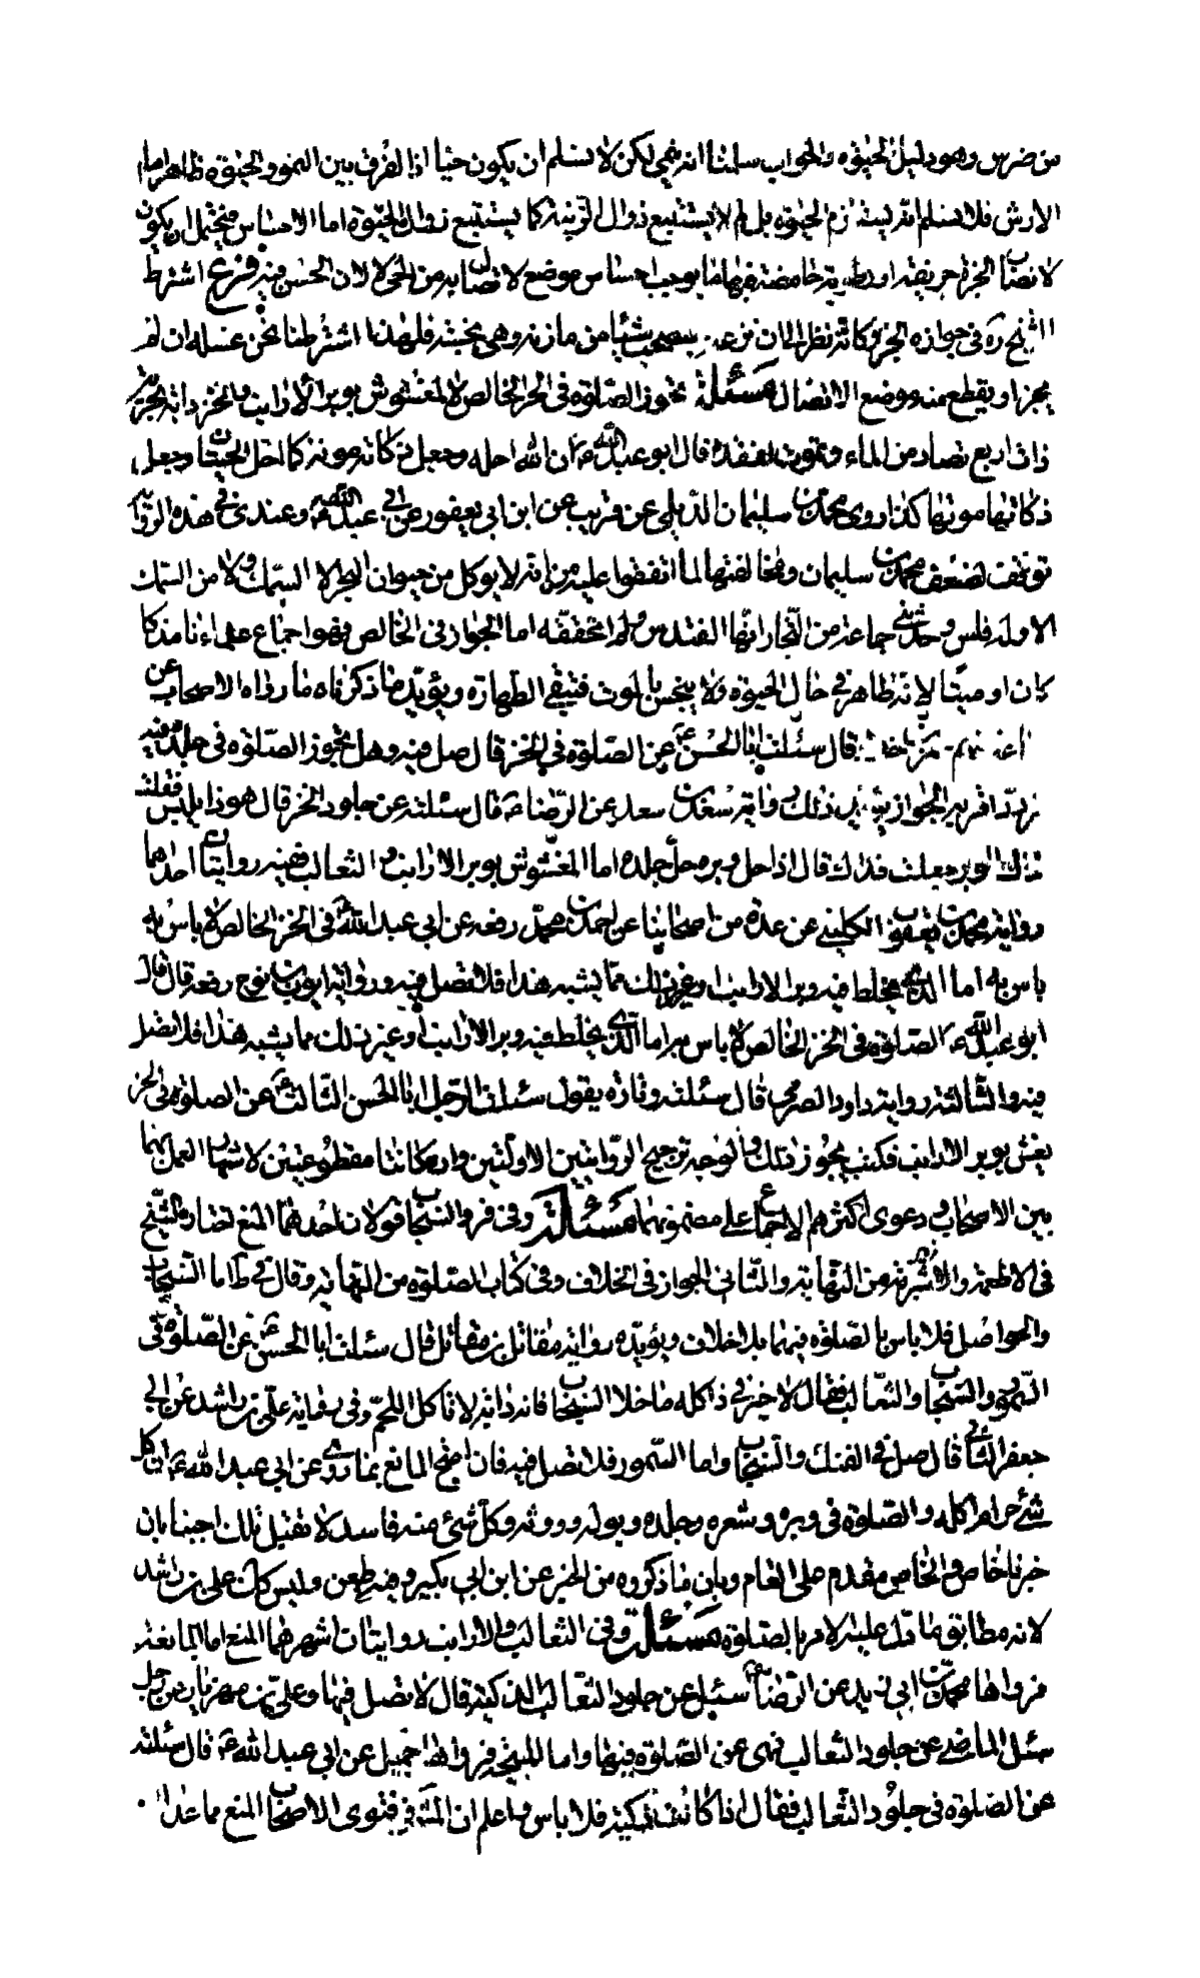 من ضرس وهو دليل الحيٰوة والجواب سلمنا انه ينمى لكن لا نسلم ان يكون حيا اذ الفرق بين النمو والحيوة ظاهر اما
الارش فلا نسلم انه يستلزم الحيوة بل لم لا يستتبع زوال الزينة كما يستتبع زوال الحيوة اما الاحساس فيحتمل ان يكون
لاتصاب الجزء حريفة او رطوبة حامضة فيها ما يوجب احساس موضع لاتصاله من الحى لا لان الحس فيه فرع اشترط
الشيخ ره فى جوازه الجز وكانه نظر الى ان نزعه يستصحب شيئا من مادته وهى نجسة فلهذا اشترطنا نحن غسله ان لم
يجز او يقطع منه موضع الاتصال مسئلة تجوز الصلوة فى الخز الخالص لا المغشوش بوبر الأرانب والخز دابة بحرية
ذات اربع تصاد من الماء وتموت بفقده قال ابو عبد الله ع ان الله احله وجعل ذكاته موته كما احل الحيتان وجعل
ذكاتها موتها كذا روى محمد بن سليمان الديلمى عن قريب عن ابن ابى يعفور عن ابى عبد الله ع وعندى فى هذه الرواية
توقف لضعف محمد بن سليمان ومخالفتها لما اتفقوا عليه من انه لا يوكل من حيوان البحر الا السمك ولا من السمك
الا وله فلس وحدثنى جماعة من التجار انها القندس ولم اتحققه اما الجواز فى الخالص فهو اجماع علماءنا مذكا
كان او ميتا لانه طاهر فى حال الحيوة ولا ينجس بالموت فتبقى الطهارة ويؤيد ما ذكرناه ما رواه الاصحاب عن
قال سئلت ابا الحسن ع عن الصلوة فى الخز قال صل فيه وهل تجوز الصلوة فى جلده فيه
تردد اقربه الجواز يؤيد ذلك رواية سعد بن سعد عن الرضا ع قال سئلته عن جلود الخز قال هو ذا يلبس فقلت
ذلك الوبر جعلت فداك قال اذا حل وبره حل جلده اما المغشوش بوبر الارانب و الثعالب ففيه روايتان احدهما
رواية محمد بن يعقوب الكلينى عن عدة من اصحابنا عن احمد بن محمد رفعه عن ابى عبد الله ع فى الخز الخالص لا باس به
باس به اما الذى يخلط فيه وبر الارانب او غير ذلك مما يشبه هذا فلا تصل فيه ورواية ايوب بن نوح رفعه قال قال
ابو عبد الله ع الصلوة فى الخز الخالص لا باس به اما الذى يخلط فيه وبر الارانب او غير ذلك مما يشبه هذا فلا تصل
فيه والثالثة رواية داود الصرمى قال سئلته وتارة يقول سئلت الرجل ابا الحسن الثالث ع عن الصلوة فى الخز
يغش بوبر الارانب فكتب يجوز ذلك والوجه ترجيح الروايتين الاولتين وان كانتا مقطوعتين لاشتهار العمل بهما
بين الاصحاب ودعوى اكثرهم الاجماع على مضمونهما مسئلة وفى فرو السنجاب قولان احدهما المنع اختاره الشيخ
فى الاطعمة والاشربة من النهاية والثانى الجواز فى الخلاف وفى كتاب الصلوة من النهاية وقال فى ط اما السنجاب
والحواصل فلا باس بالصلوة فيهما بلا خلاف ويؤيده رواية مقاتل بن مقاتل قال سئلت ابا الحسن ع عن الصلوة فى
السمور والسنجاب والثعالب فقال لا خير فى ذا كله ما خلا السنجاب فانه دابة لا تاكل اللحم وفى رواية على بن راشد عن ابى
جعفر الثانى قال صل فى الفنك والسنجاب واما السمور فلا تصل فيه فان احتج المانع بما روى عن ابى عبد الله ع ان كل
شئ حرام اكله والصلوة فى وبره وشعره وجلده وبوله وروثه وكل شئ منه فاسد لا تقبل تلك اجبنا بان
خبرنا خاص والخاص مقدم على العام وبان ما ذكروه من الخبر عن ابن ابى بكير وفيه طعن وليس كك على بن راشد
لانه مطابق ما دل عليه الامر بالصلوة مسئلة وفى الثعالب والارانب روايتان اشهرهما المنع اما المانعة
فرواها محمد بن ابى زيد عن الرضا ع سئل عن جلود الثعالب الذكية قال لا تصل فيها وعلى بن مهزيار عن رجل
سئل الماضى عن جلود الثعالب فنهى عن الصلوة فيها واما المبيحة فرواها جميل عن ابى عبد الله ع قال سئلته
عن الصلوة فى جلود الثعالب فقال اذا كانت ذكية فلا باس واعلم ان المشهور فى فتوى الاصحاب المنع مما عدا